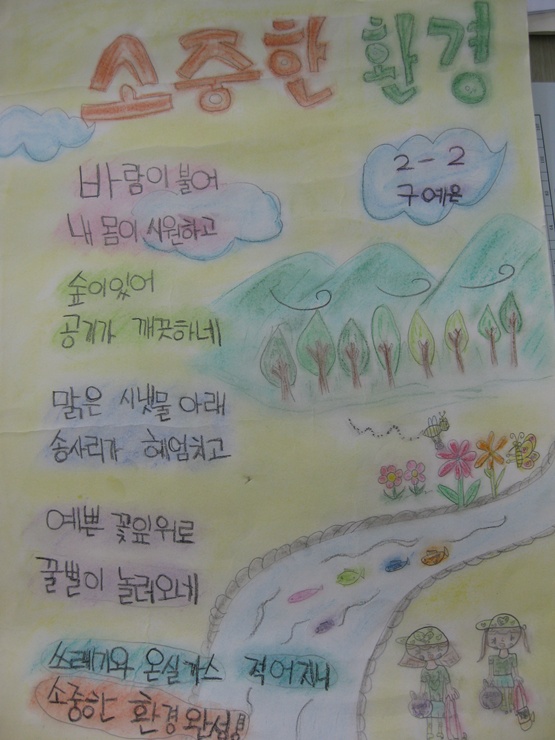 소중한 환경
2-2
구예은
바람이 불어
내 몸이 시원하고
숲이있어
공기가 깨끗하네
맑은 시냇물 아래
송사리가 헤엄치고
예쁜 꽃잎위로
꿀벌이 놀러오네
쓰레기와 온실가스 적어지니
소중한 환경 완성!